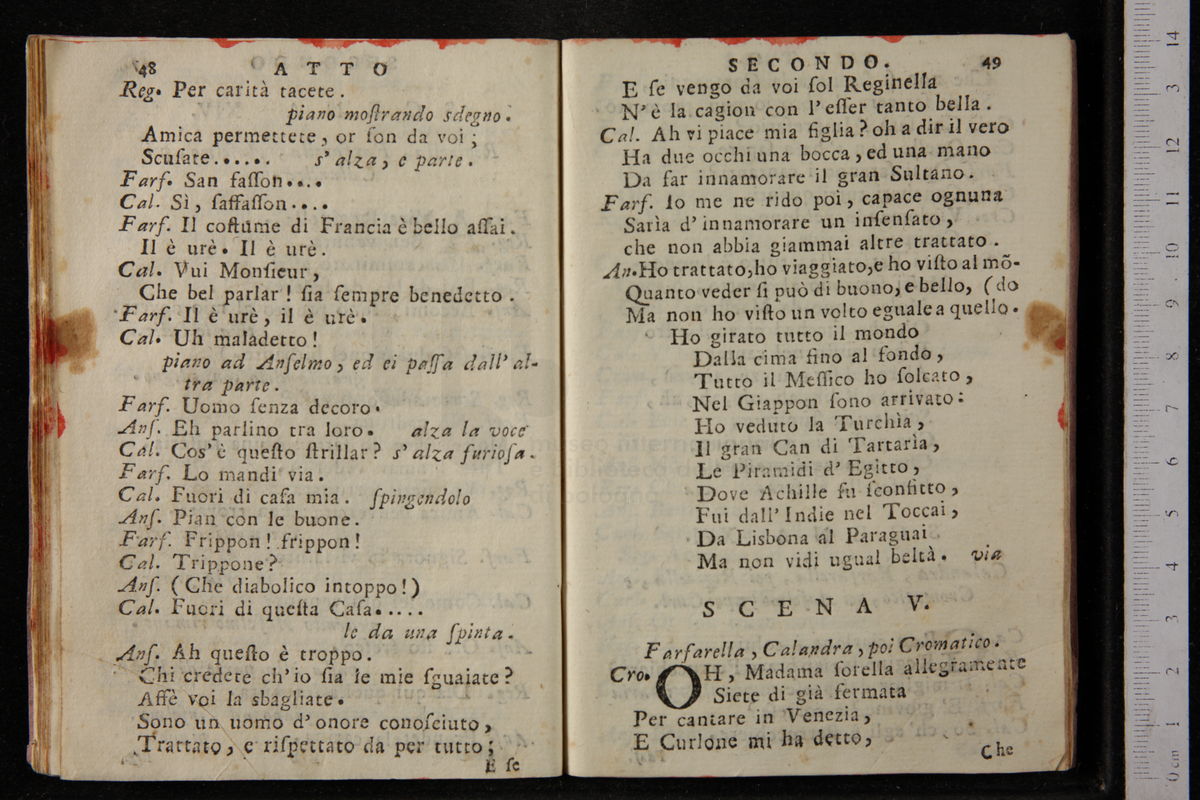 48 ATTO
Reg. Per carità tacete.
piano moſtrando sdegno.
Amica permettete, or ſon da voi;
Scuſate...... s'alza, e parte.
Farſ. San faſſon....
Cal. Sì, ſaffaſſon....
Farſ. Il coſtume di Francia è bello aſſai.
Il è urè. Il è urè.
Cal. Vui Monſieur,
Che bel parlar! ſia ſempre benedetto.
Farſ. Il è urè, il è urè.
Cal. Uh maladetto!
piano ad Anſelmo, ed ei paſſa dall' al-
tra parte.
Farſ. Uomo ſenza decoro.
Anſ. Eh parlino tra loro. alza la voce
Cal. Cos' è queſto ſtrillar? s'alza furioſa.
Farſ. Lo mandi via.
Cal. Fuori di caſa mia. ſpingendolo
Anſ. Pian con le buone.
Farſ. Frippon! frippon!
Cal. Trippone?
Anſ. (Che diabolico intoppo!)
Cal. Fuori di queſta Caſa.....
le da una ſpinta.
Anſ. Ah queſto è troppo.
Chi credete ch'io ſia le mie ſguaiate?
Affè voi la sbagliate.
Sono un uomo d'onore conoſciuto,
Trattato, e riſpettato da per tutto;
E ſe
SECONDO. 49
E ſe vengo da voi ſol Reginella
N' è la cagion con l'eſſer tanto bella.
Cal. Ah vi piace mia figlia? oh a dir il vero
Ha due occhi una bocca, ed una mano
Da far innamorare il gran Sultano.
Farſ. Io me ne rido poi, capace ognuna
Sarìa d'innamorare un inſenſato,
che non abbia giammai altre trattato.
An. Ho trattato, ho viaggiato, e ho viſto al mõ-
Quanto veder ſi può di buono, e bello, (do
Ma non ho viſto un volto eguale a quello.
Ho girato tutto il mondo
Dalla cima fino al fondo,
Tutto il Meſſico ho ſolcato,
Nel Giappon ſono arrivato:
Ho veduto la Turchìa,
Il gran Can di Tartarìa,
Le Piramidi d'Egitto,
Dove Achille fu ſconfitto,
Fui dall'Indie nel Toccai,
Da Lisbona al Paraguai
Ma non vidi ugual beltà. via
SCENA V.
Farfarella, Calandra, poi Cromatico.
Cro. OH, Madama ſorella allegramente
Siete di già fermata
Per cantare in Venezia,
E Curlone mi ha detto,
Che